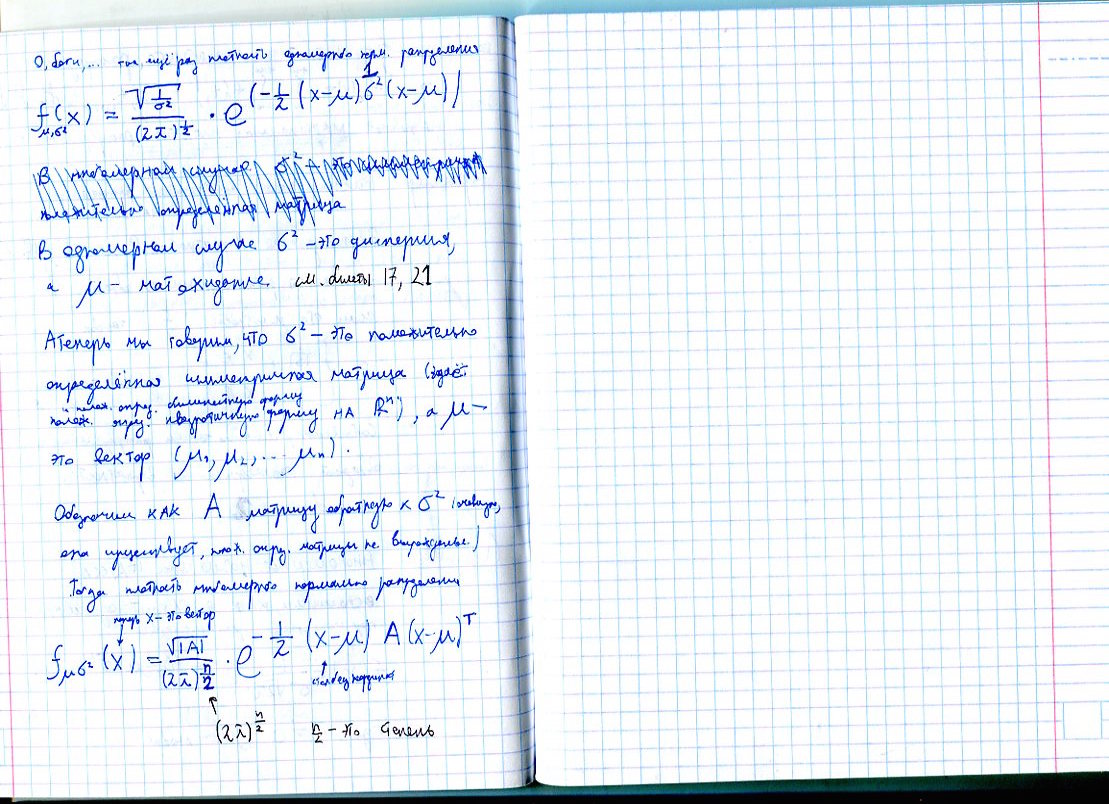 О, боги, ... так ещё раз плотность одномерного норм. распределения
f_{μ,σ²}(x) = \frac{\sqrt{\frac{1}{σ²}}}{(2π)^{\frac{1}{2}}} · e^{(-\frac{1}{2} (x-μ) \frac{1}{σ²} (x-μ))}
В многомерном случае σ² – это
положительно определённая матрица
В одномерном случае σ² – это дисперсия,
а μ – мат ожидание. см. билеты 17, 21
А теперь мы говорим, что σ² – это положительно
определённая симметричная матрица (задаёт
и полож. опред. билинейную форму
полож. опред. квадратичную форму на ℝⁿ), а μ –
это вектор (μ₁, μ₂, ... μₙ).
Обозначим как A матрицу, обратную к σ² (очевидно,
она существует, полож. опред. матрицы не вырожденные.)
Тогда плотность многомерного нормально распределения
теперь x – это вектор
f_{μσ²}(x) = \frac{\sqrt{|A|}}{(2π)^{\frac{n}{2}}} · e^{-\frac{1}{2} (x-μ) A (x-μ)^T}
столбец координат
(2π)^{\frac{n}{2}} \frac{n}{2} – это степень